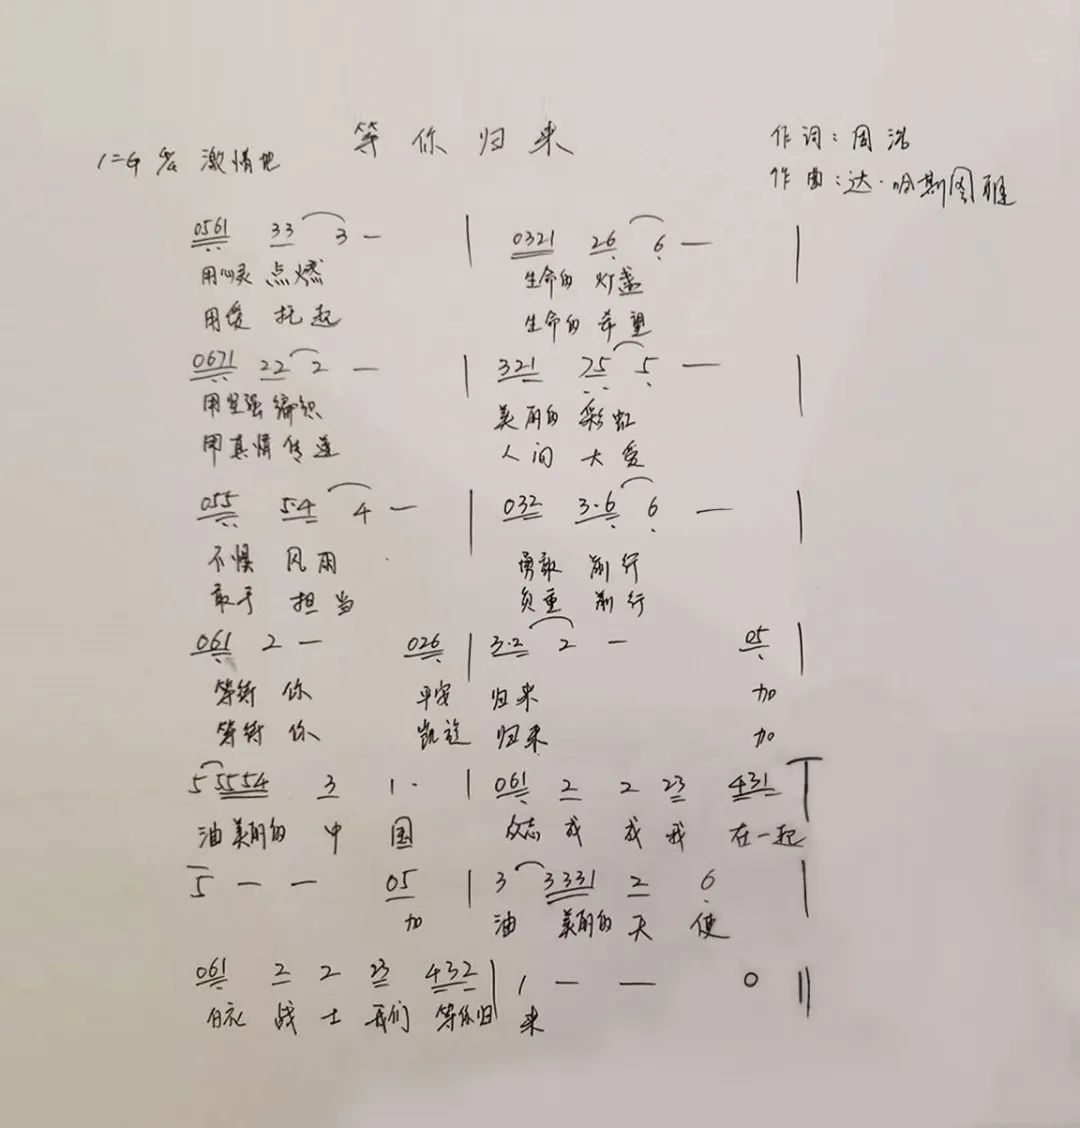 等你归来
1=G 激情地
作词:周浩
作曲:达·哈斯图雅
0561 33 3 — | 0321 26 6 — |
用心灵 点燃 生命的 灯盏
用爱 托起 生命的 希望
0671 22 2 — | 321 75 5 — |
用坚强 编织 美丽的 彩虹
用真情 传递 人间 大爱
055 5·4 4 — | 032 3·6 6 — |
不惧 风雨 勇敢 前行
敢于 担当 负重 前行
061 2 — 026 | 3·2 2 — 05 |
等待 你 平安 归来 加
等待 你 凯旋 归来 加
5 5554 3 1· | 061 2 2 23 431
油 美丽的 中 国 众志 成 成 我 在一起
5 — — 05 | 3 3331 2 6 |
加 油 美丽的 天 使
061 2 2 23 432 | 1 — — 0 ‖
白衣 战 士 我们 等你归 来